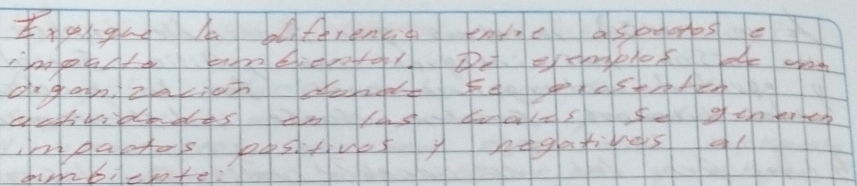 Explique la diferencia entre aspectos e
impacto ambiental. De ejemplos de una
organización donde se presenten
actividades en las cuales se generen
impactos positivos y negativos al
ambiente: